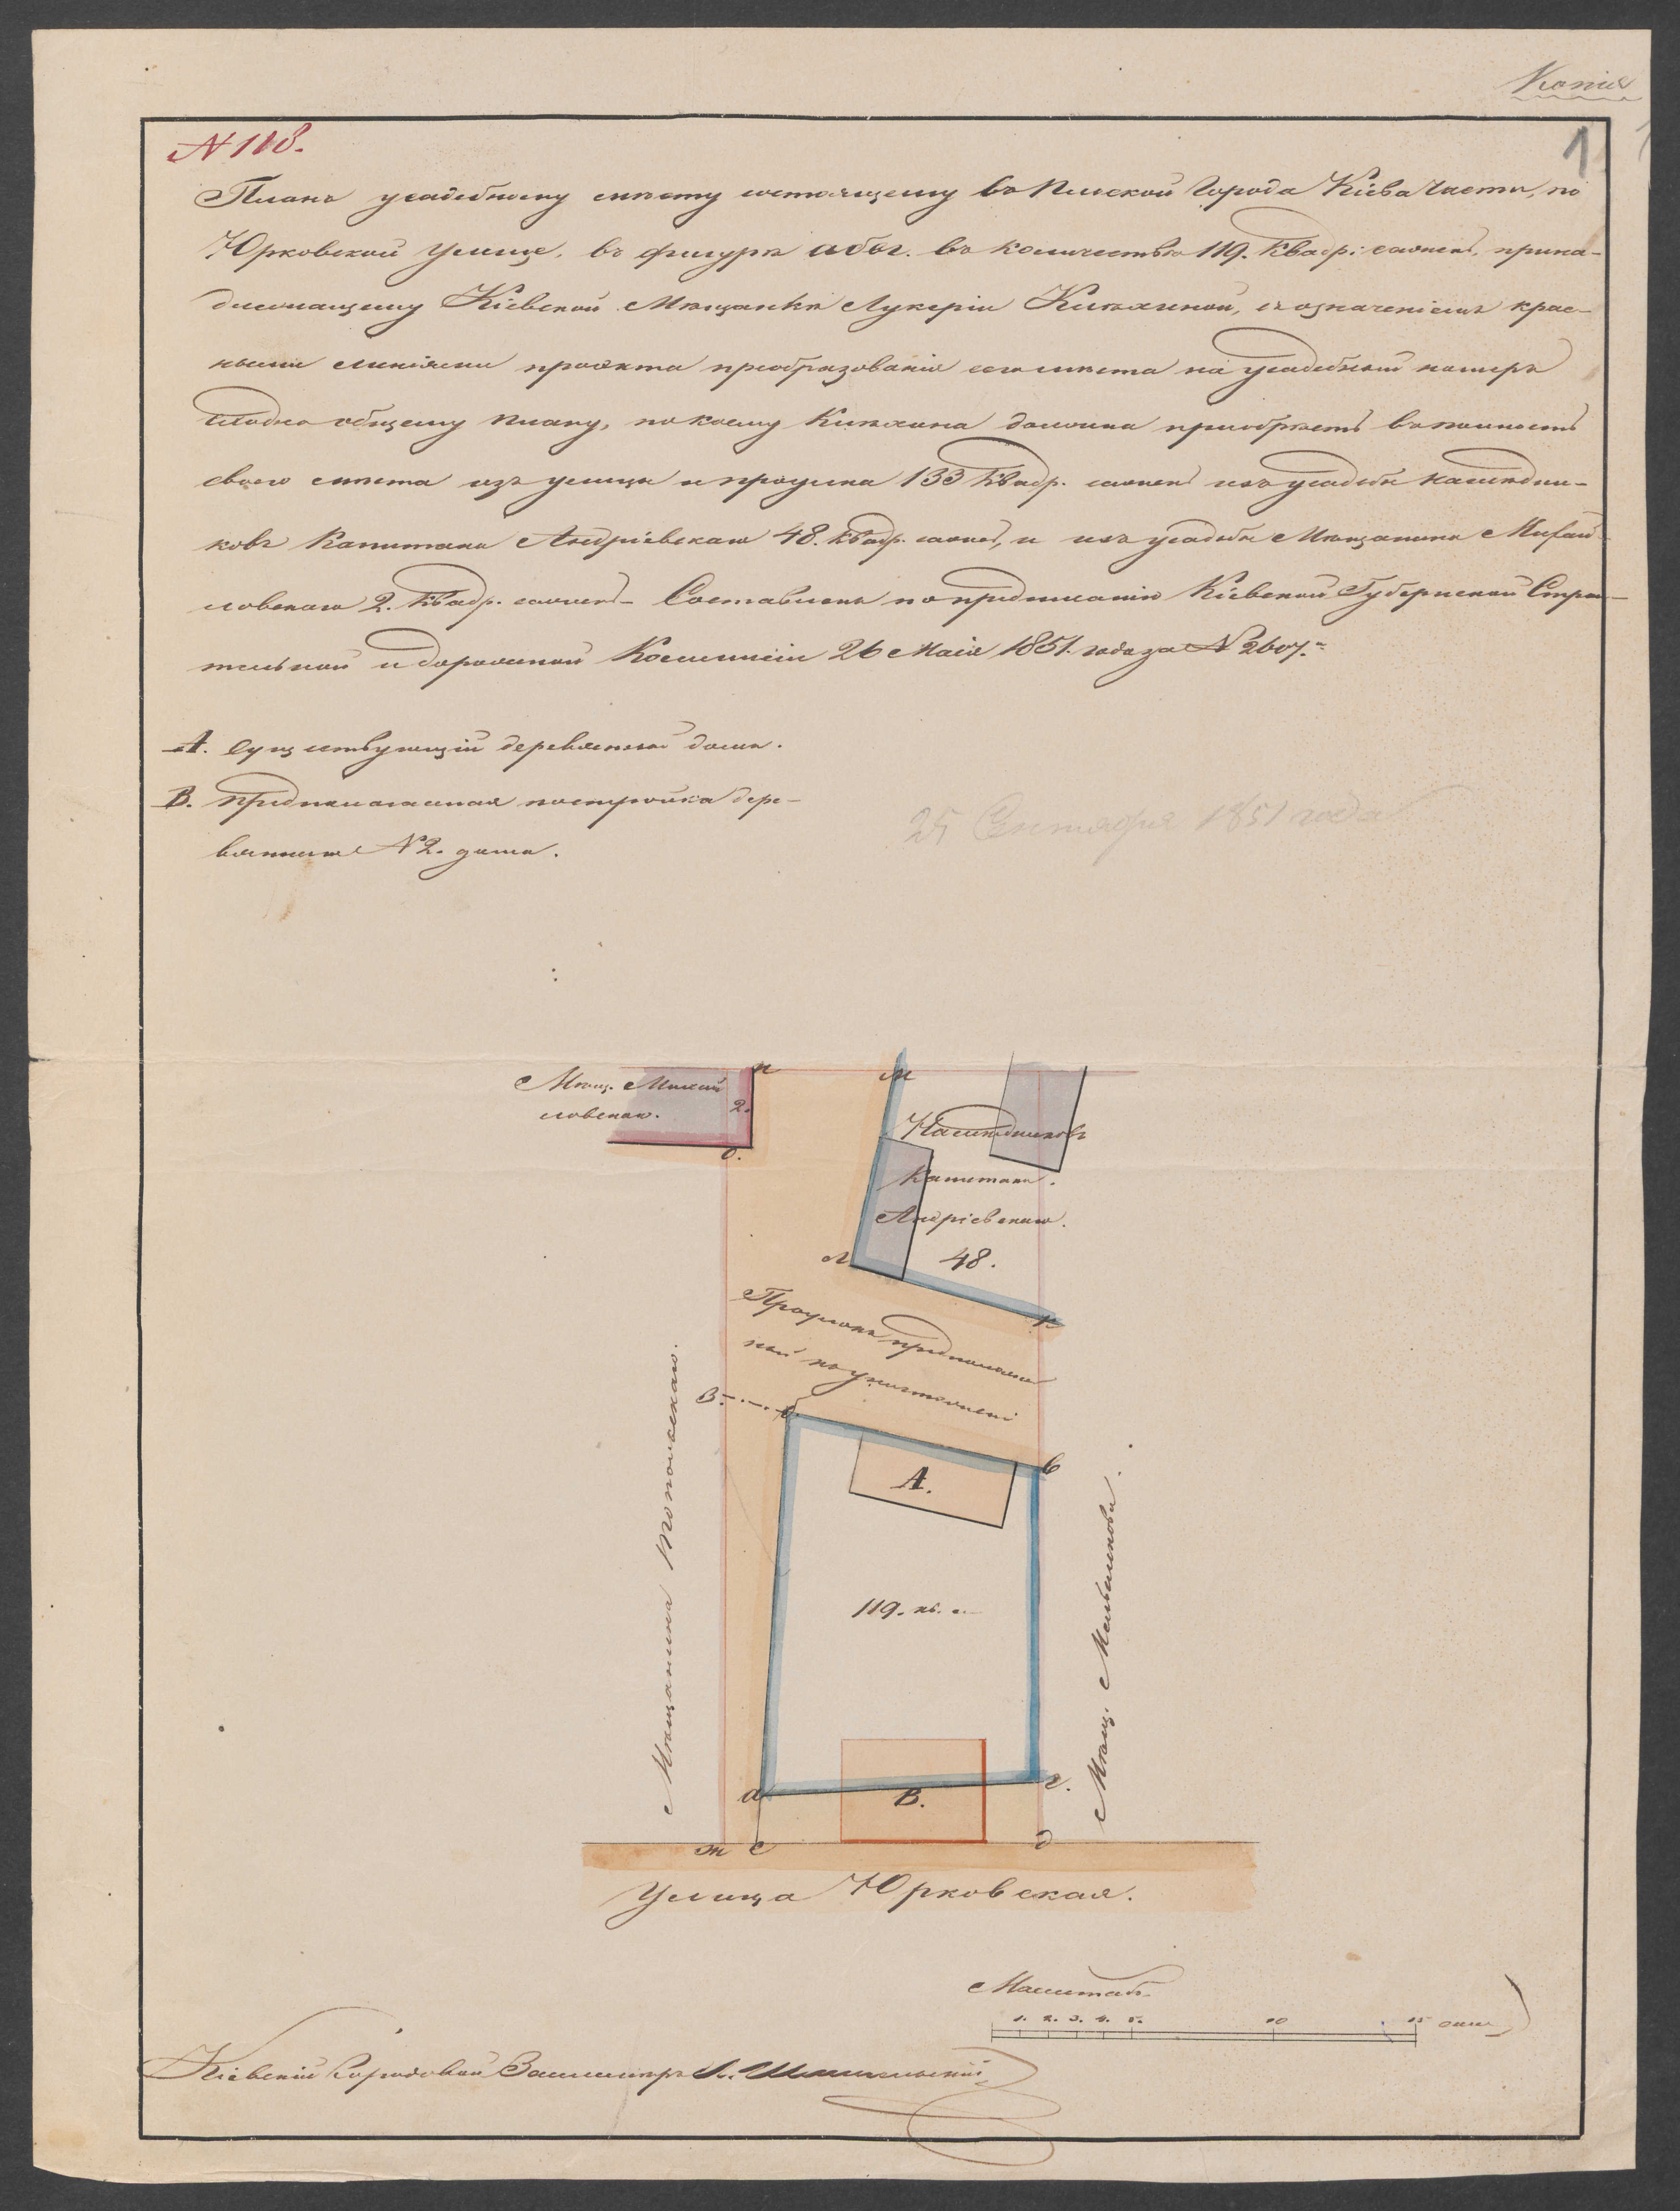 Копія
1
N 118.
Планъ усадебному мѣсту состоящему въ Плоской Города Кіева Части, по
Юрковской улице, въ фигурѣ абвг. въ количествѣ 119. квадр: сажень, прина-
длежащему Кіевской Мѣщанкѣ Лукеріи Княхиной, съ означеніемъ крас-
ными линіями проэкта преобразованія сего мѣста на усадебный номеръ
сходно общему плану, по коему Княхина должна приобрѣсть въ полность
своего мѣста изъ улицы и проулка 133 квадр. сажень изъ усадьбы наслѣдни-
ковъ Капитана Андріевскаго 48. квадр. сажень, и изъ усадьбы Мѣщанина Михай-
ловскаго 2. квадр. сажень – Составленъ по предписанію Кіевской Губернской Строи-
тельной и дорожной Коммисіи 26 Маія 1851. года за N 2607.
А. существующій деревянный домъ.
В. предполагаемая постройка дере-
вяннаго N 2. дома.
25 Сентября 1851 года
Мѣщ. Михай
ловскаго.
2.
п
м
о.
Наслѣдниковъ
Капитана.
Андріевскаго.
48.
л
к
Проулокъ предполагае
мый по уничтоженію
з.
б
в
А.
119. кв. с.
Мѣщанина
Мѣщ. Мельникова.
а
г.
В.
ж е
д
Улица Юрковская.
Масштабъ
1. 2. 3. 4. 5. 10 15 саж.
Кіевскій Городовой Землемѣръ